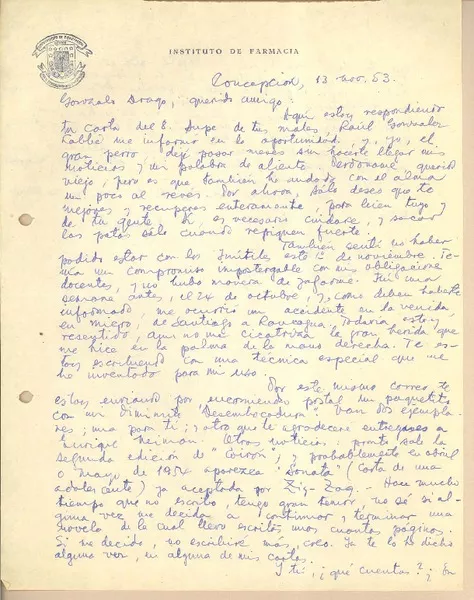 INSTITUTO DE FARMACIA
Concepción, 13 nov. 53.
Gonzalo Drago, querido amigo:
Aquí estoy respondiendo
tu carta del 8. Supe de tus males. Raúl González
Labbé me informó en la oportunidad, y yo, el
gran perro, dejé pasar meses sin hacerte llegar mis
noticias y mi palabra de aliento. Perdóname, querido
viejo, pero es que también he andado con el alma
un poco al revés. Por ahora, sólo deseo que te
mejores y recuperes enteramente, para bien tuyo y
de tu gente. Es necesario cuidarse, y sacar
las patas sólo cuando repiquen fuerte.
También sentí no haber
podido estar con los Inútiles este 1º de noviembre. Te-
nía un compromiso impostergable con mis obligaciones
docentes, y no hubo manera de zafarme. Fui una
semana antes, el 24 de octubre, y, como deben haberte
informado, me ocurrió un accidente en la venida,
en micro, de Santiago a Rancagua. Todavía estoy
resentido, aún no me cicatriza la gran herida que
me hice en la palma de la mano derecha. Te es-
toy escribiendo con una técnica especial que me
he inventado para mi uso.
Por este mismo correo te
estoy enviando por encomienda postal un paquetito
con mi diminuto "Desembocadura". Van dos ejempla-
res; una para ti; y otro que te agradeceré entregues a
Enrique Neiman. Otras noticias: pronto sale la
segunda edición de "Coirón", y probablemente en abril
o mayo de 1954 aparezca "Sonata" (Carta de una
adolescente) ya aceptada por Zig-Zag.- Hace mucho
tiempo que no escribo, tengo gran temor, no sé si al-
guna vez me decida a continuar y terminar una
novela de la cual llevo escritas unas cuantas páginas.
Si me decido, no escribiré más, creo. Ya te lo he dicho
alguna vez, en alguna de mis cartas.
Y tú, ¿qué cuentas? ¿En